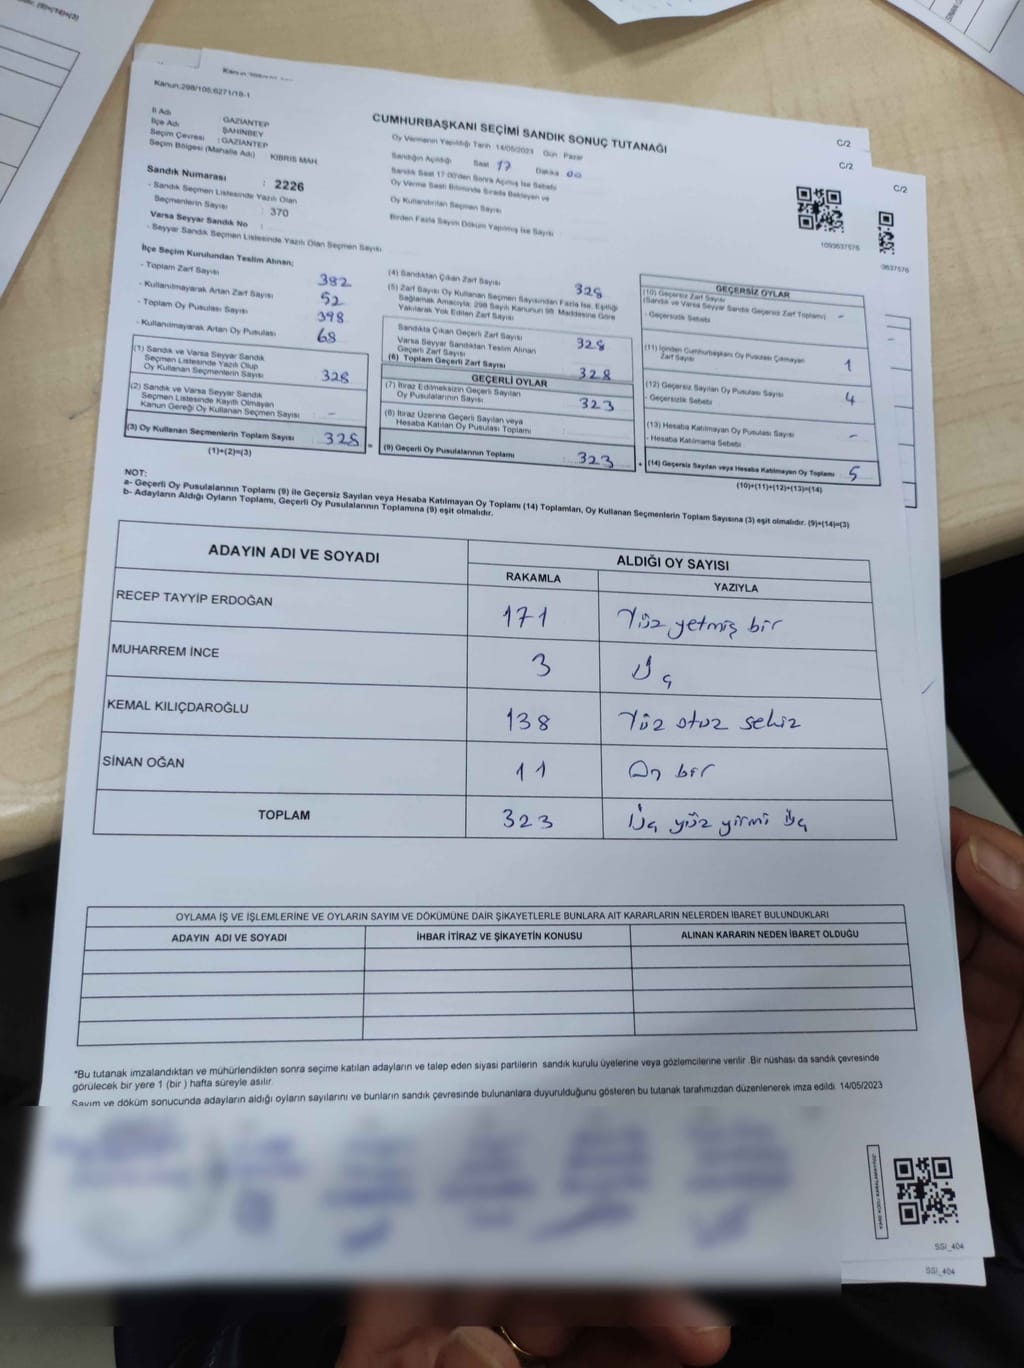 Kanun.298/105,6271/18-1
CUMHURBAŞKANI SEÇİMİ SANDIK SONUÇ TUTANAĞI
C/2
C/2
C/2
İl Adı : GAZİANTEP
İlçe Adı : ŞAHİNBEY
Seçim Çevresi : GAZİANTEP
Seçim Bölgesi (Mahalle Adı) KIBRIS MAH.
Oy Vermenin Yapıldığı Tarih 14/05/2023 Gün Pazar
Sandığın Açıldığı Saat 17 Dakika 00
Sandık Saat 17:00'den Sonra Açılmış İse Sebebi
Oy Verme Saati Bitiminde Sırada Bekleyen ve
Oy Kullandırılan Seçmen Sayısı
Birden Fazla Sayım Döküm Yapılmış İse Sayısı
Sandık Numarası : 2226
- Sandık Seçmen Listesinde Yazılı Olan
Seçmenlerin Sayısı : 370
Varsa Seyyar Sandık No :
- Seyyar Sandık Seçmen Listesinde Yazılı Olan Seçmen Sayısı
1093637576
9637576
İlçe Seçim Kurulundan Teslim Alınan;
- Toplam Zarf Sayısı 382
- Kullanılmayarak Artan Zarf Sayısı 52
- Toplam Oy Pusulası Sayısı 398
- Kullanılmayarak Artan Oy Pusulası 68
(1) Sandık ve Varsa Seyyar Sandık
Seçmen Listesinde Yazılı Olup
Oy Kullanan Seçmenlerin Sayısı 328
(2) Sandık ve Varsa Seyyar Sandık
Seçmen Listesinde Kayıtlı Olmayan
Kanun Gereği Oy Kullanan Seçmen Sayısı : -
(3) Oy Kullanan Seçmenlerin Toplam Sayısı 328 =
(1)+(2)=(3)
(4) Sandıktan Çıkan Zarf Sayısı 328
(5) Zarf Sayısı Oy Kullanan Seçmen Sayısından Fazla İse, Eşitliği
Sağlamak Amacıyla, 298 Sayılı Kanunun 98. Maddesine Göre
Yakılarak Yok Edilen Zarf Sayısı
Sandıkta Çıkan Geçerli Zarf Sayısı 328
Varsa Seyyar Sandıktan Teslim Alınan
Geçerli Zarf Sayısı
(6) Toplam Geçerli Zarf Sayısı 328
GEÇERLİ OYLAR
(7) İtiraz Edilmeksizin Geçerli Sayılan
Oy Pusulalarının Sayısı 323
(8) İtiraz Üzerine Geçerli Sayılan veya
Hesaba Katılan Oy Pusulası Toplamı
(9) Geçerli Oy Pusulalarının Toplamı 323 +
GEÇERSİZ OYLAR
(10) Geçersiz Zarf Sayısı
(Sandık ve Varsa Seyyar Sandık Geçersiz Zarf Toplamı) -
- Geçersizlik Sebebi
(11) İçinden Cumhurbaşkanı Oy Pusulası Çıkmayan
Zarf Sayısı 1
(12) Geçersiz Sayılan Oy Pusulası Sayısı 4
- Geçersizlik Sebebi
(13) Hesaba Katılmayan Oy Pusulası Sayısı -
- Hesaba Katılmama Sebebi
(14) Geçersiz Sayılan veya Hesaba Katılmayan Oy Toplamı 5
(10)+(11)+(12)+(13)=(14)
NOT:
a- Geçerli Oy Pusulalarının Toplamı (9) ile Geçersiz Sayılan veya Hesaba Katılmayan Oy Toplamı (14) Toplamları, Oy Kullanan Seçmenlerin Toplam Sayısına (3) eşit olmalıdır. (9)+(14)=(3)
b- Adayların Aldığı Oyların Toplamı, Geçerli Oy Pusulalarının Toplamına (9) eşit olmalıdır.
ADAYIN ADI VE SOYADI
ALDIĞI OY SAYISI
RAKAMLA YAZIYLA
RECEP TAYYİP ERDOĞAN 171 Yüz yetmiş bir
MUHARREM İNCE 3 Üç
KEMAL KILIÇDAROĞLU 138 Yüz otuz sekiz
SİNAN OĞAN 11 On bir
TOPLAM 323 Üç yüz yirmi üç
OYLAMA İŞ VE İŞLEMLERİNE VE OYLARIN SAYIM VE DÖKÜMÜNE DAİR ŞİKAYETLERLE BUNLARA AİT KARARLARIN NELERDEN İBARET BULUNDUKLARI
ADAYIN ADI VE SOYADI İHBAR İTİRAZ VE ŞİKAYETİN KONUSU ALINAN KARARIN NEDEN İBARET OLDUĞU
*Bu tutanak imzalandıktan ve mühürlendikten sonra seçime katılan adayların ve talep eden siyasi partilerin sandık kurulu üyelerine veya gözlemcilerine verilir. Bir nüshası da sandık çevresinde
görülecek bir yere 1 (bir ) hafta süreyle asılır.
Sayım ve döküm sonucunda adayların aldığı oyların sayılarını ve bunların sandık çevresinde bulunanlara duyurulduğunu gösteren bu tutanak tarafımızdan düzenlenerek imza edildi. 14/05/2023
SSİ_404
SSİ_404